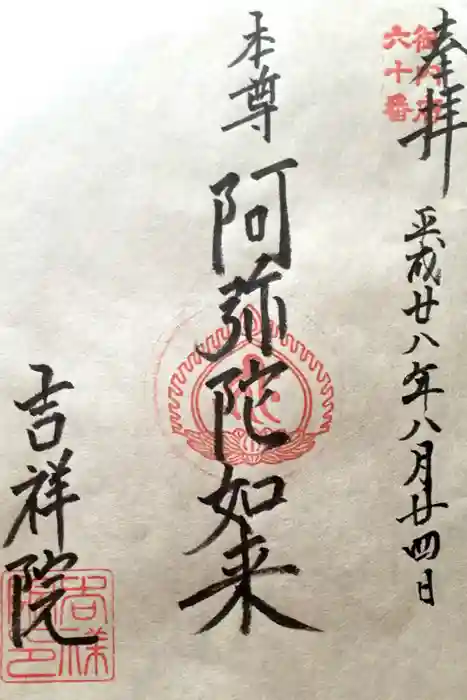 奉拝
御府内
六十番
平成廿八年八月廿四日
本尊
阿弥陀如来
吉祥院